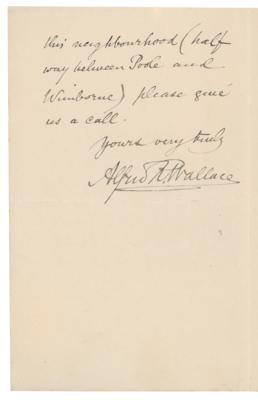 this neighbourhood (half
way between Poole and
Wimborne) please give
us a call.
Yours very truly
Alfred R. Wallace